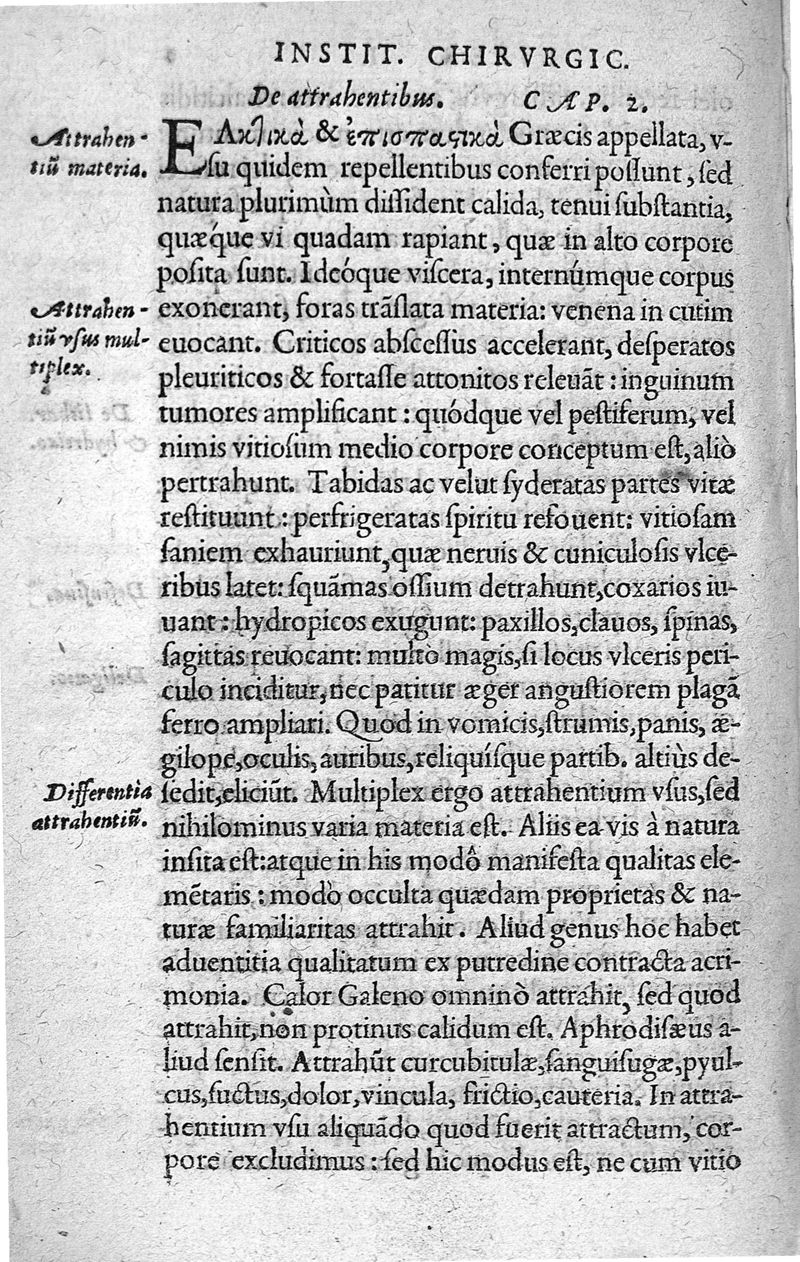 INSTIT. CHIRVRGIC.
De attrahentibus. CAP. 2.
Attrahen-
tiũ materia.
EΛκλικὰ & ἐπισπαςικὰ Græcis appellata, v-
ſu quidem repellentibus conferri poſſunt, ſed
natura plurimùm diſſident calida, tenui ſubſtantia,
quæq́ue vi quadam rapiant, quæ in alto corpore
poſita ſunt. Ideóque viſcera, internúmque corpus
Attrahen-
tiũ vſus mul-
tiplex.
exonerant, foras trãſlata materia: venena in cutim
euocant. Criticos abſceſſus accelerant, deſperatos
pleuriticos & fortaſſe attonitos releuãt : inguinum
tumores amplificant : quódque vel peſtiferum, vel
nimis vitioſum medio corpore conceptum eſt, aliò
pertrahunt. Tabidas ac velut ſyderatas partes vitæ
reſtituunt : perfrigeratas ſpiritu refouent: vitioſam
ſaniem exhauriunt, quæ neruis & cuniculoſis vlce-
ribus latet: ſquãmas oſſium detrahunt, coxarios iu-
uant : hydropicos exugunt: paxillos, clauos, ſpinas,
ſagittas reuocant: multò magis, ſi locus vlceris peri-
culo inciditur, nec patitur æger anguſtiorem plagã
ferro ampliari. Quod in vomicis, ſtrumis, panis, æ-
gilope, oculis, auribus, reliquíſque partib. altiùs de-
Differentia
attrahentiũ.
ſedit, eliciũt. Multiplex ergo attrahentium vſus, ſed
nihilominus varia materia eſt. Aliis ea vis à natura
inſita eſt: atque in his modô manifeſta qualitas ele-
mẽtaris : modò occulta quædam proprietas & na-
turæ familiaritas attrahit. Aliud genus hoc habet
aduentitia qualitatum ex putredine contracta acri-
monia. Calor Galeno omninò attrahit, ſed quod
attrahit, non protinus calidum eſt. Aphrodiſæus a-
liud ſenſit. Attrahũt curcubitulæ, ſanguiſugæ, pyul-
cus, ſuctus, dolor, vincula, frictio, cauteria. In attra-
hentium vſu aliquãdo quod fuerit attractum, cor-
pore excludimus : ſed hic modus eſt, ne cum vitio